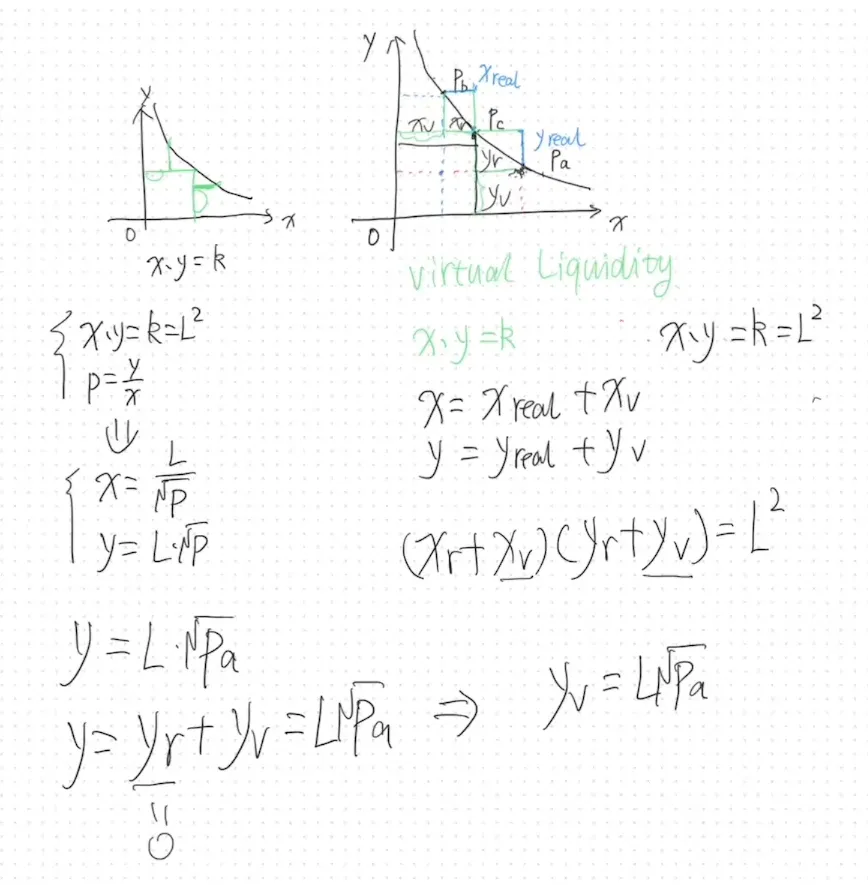 y
0
x
x·y=k
y
Pb
xreal
xv
xr
Pc
yreal
yr
Pa
yv
0
x
virtual Liquidity
x·y=k=L²
p=y/x
⇓
x=L/√P
y=L·√P
x·y=k
x·y=k=L²
x=xreal+xv
y=yreal+yv
(xr+xv)(yr+yv)=L²
y=L·√Pa
y=yr+yv=L√Pa ⇒ yv=L√Pa
=
0